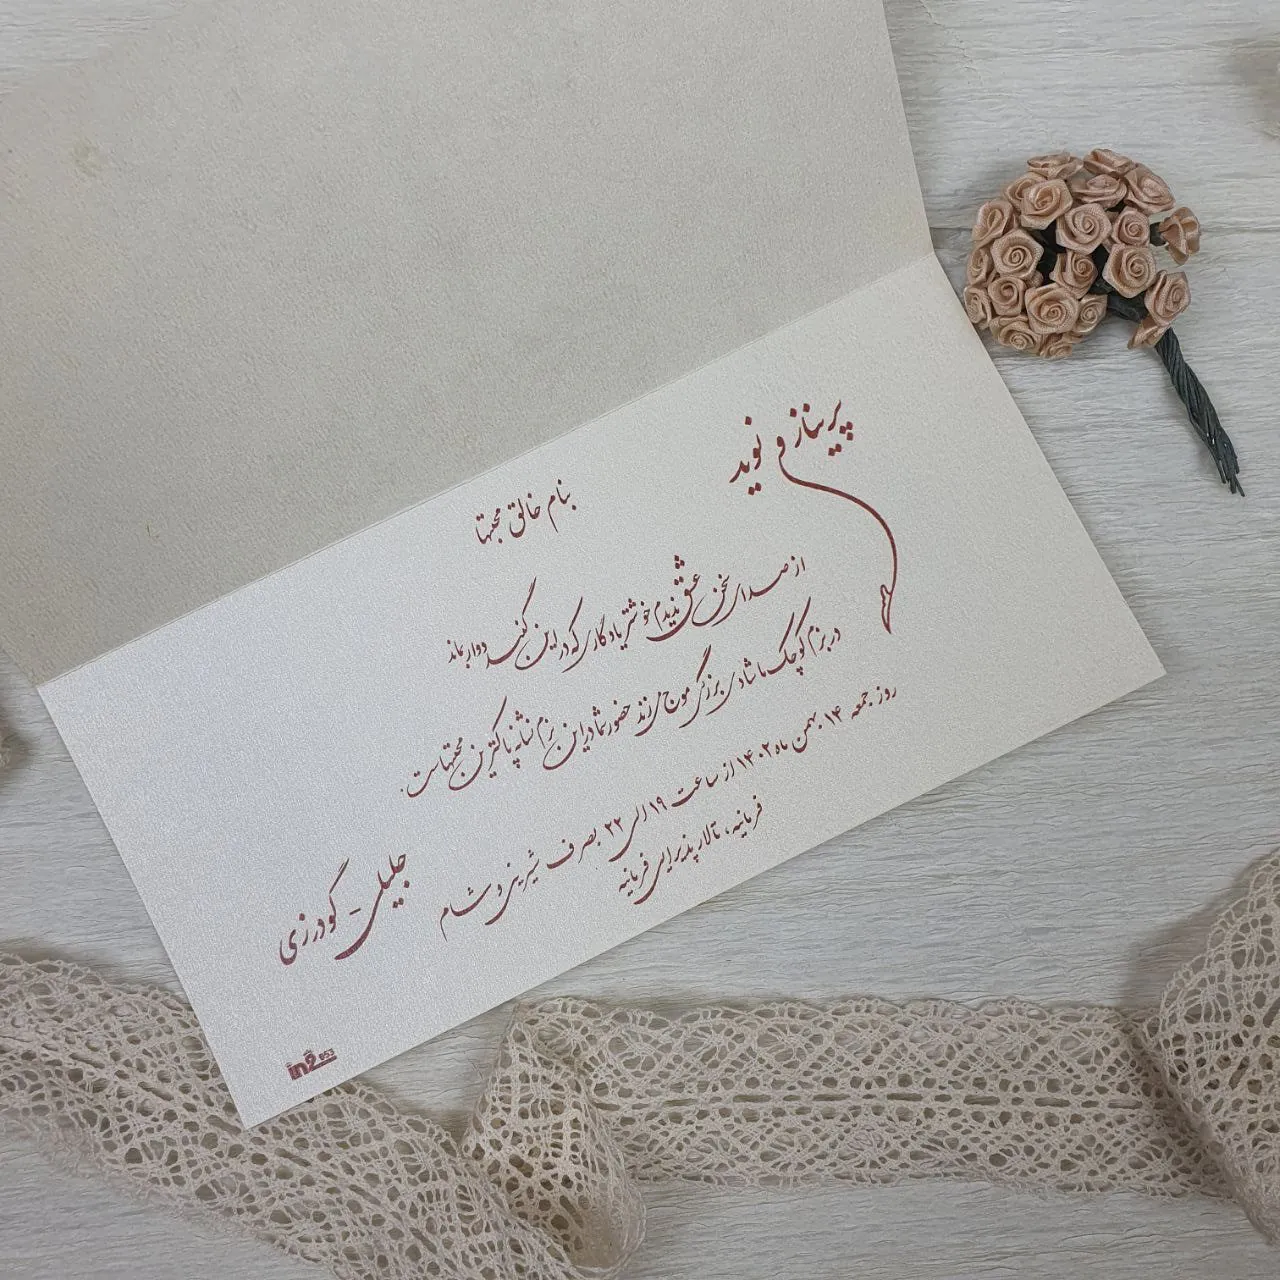 بنام خالق محبتها
پریناز و نوید
از صدای سخن عشق ندیدم خوشتر یادگاری که در این گنبد دوار بماند
در بزم کوچک ما شادی بزرگی موج می زند حضور شما در این بزم نشانه پاکترین محبتهاست.
روز جمعه ۱۴ بهمن ماه ۱۴۰۲ از ساعت ۱۹ الی ۲۲ بصرف شیرینی و شام
فرمانیه، تالار پذیرایی فرمانیه
جلیلی - گودرزی
in2 053